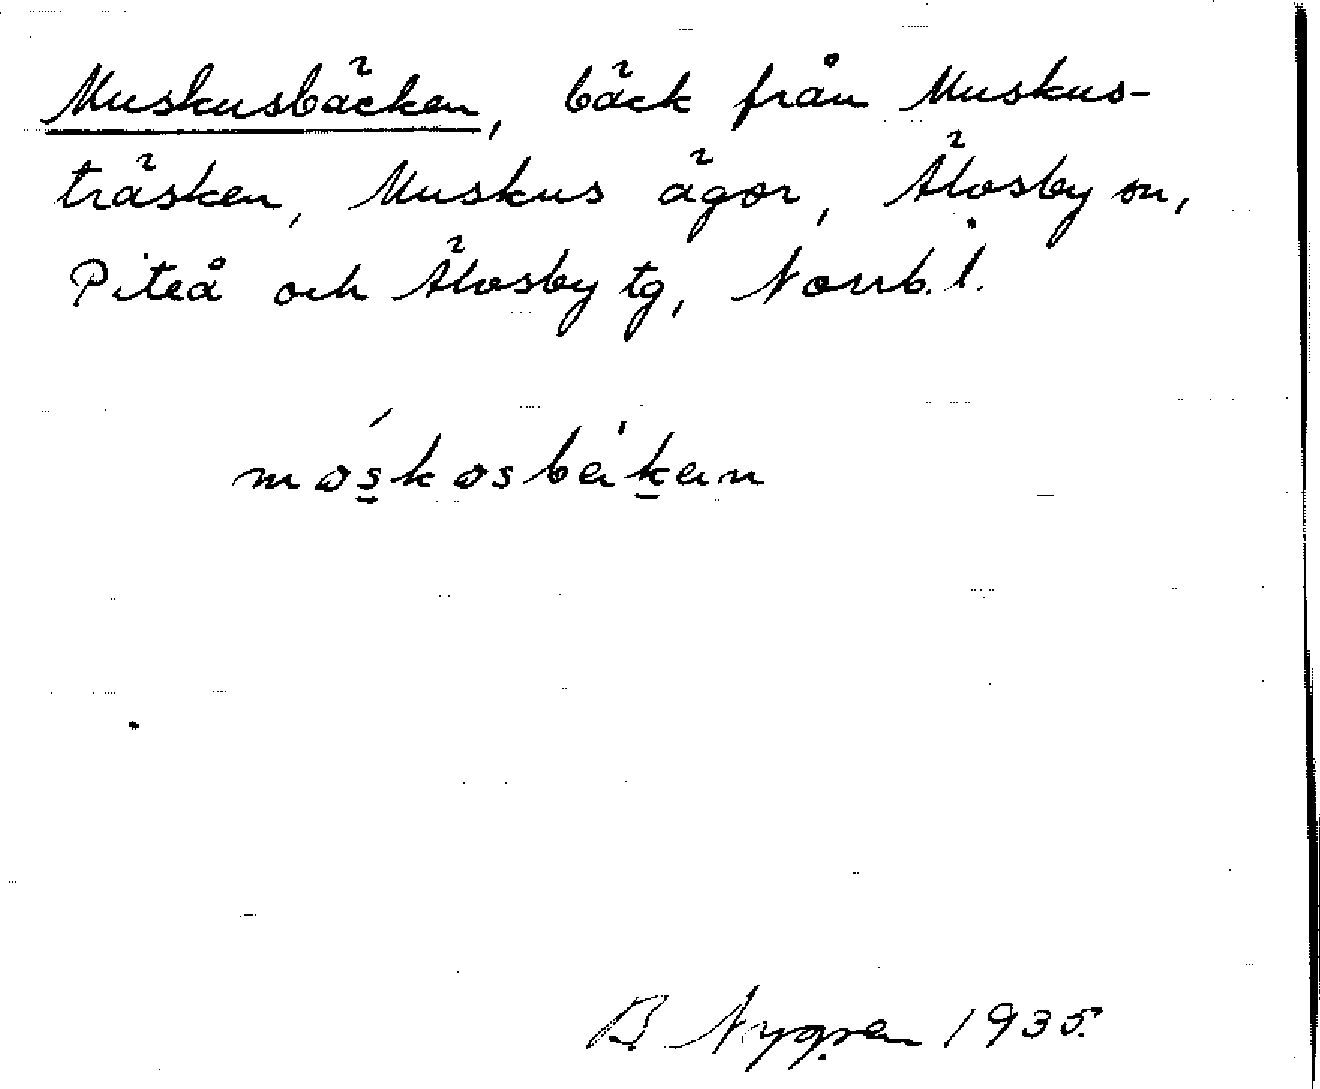 Muskusbäcken, bäck från Muskus-
träsken, Muskus ägor, Älvsby sn,
Piteå och Älvsby tg, Norrb. l.
moskosbäken
B Nygren 1935.